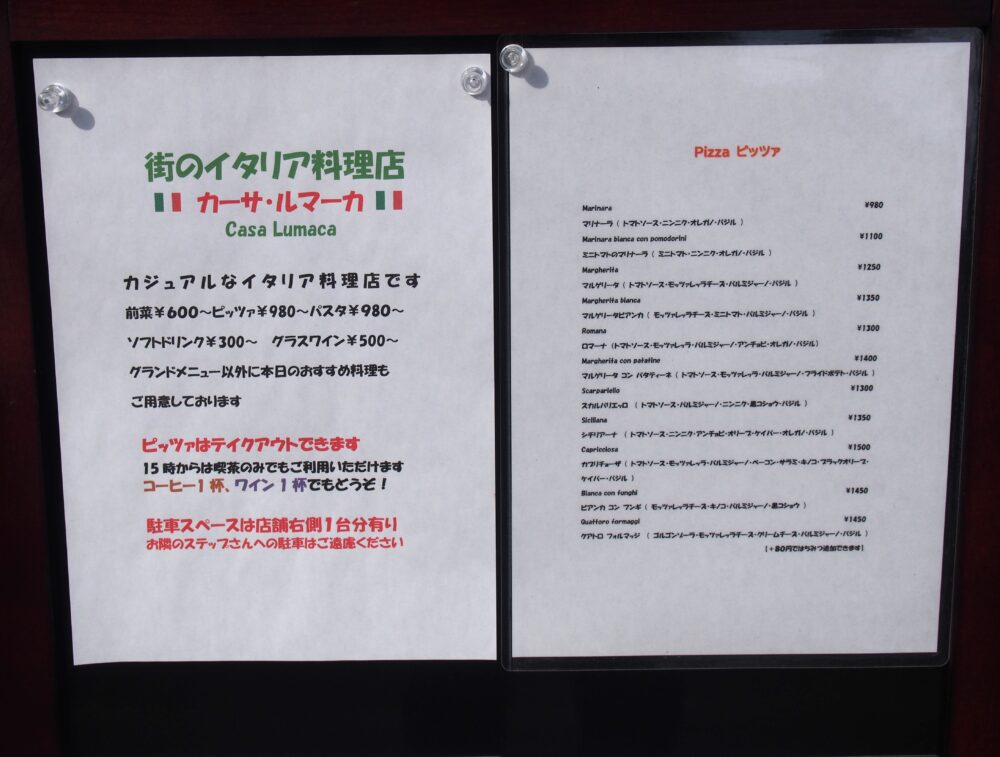 街のイタリア料理店
カーサ・ルマーカ
Casa Lumaca
カジュアルなイタリア料理店です
前菜￥600～ピッツァ￥980～パスタ￥980～
ソフトドリンク￥300～ グラスワイン￥500～
グランドメニュー以外に本日のおすすめ料理も
ご用意しております
ピッツァはテイクアウトできます
15時からは喫茶のみでもご利用いただけます
コーヒー1杯、ワイン1杯でもどうぞ！
駐車スペースは店舗右側1台分有り
お隣のステップさんへの駐車はご遠慮ください
Pizza ピッツァ
Marinara ￥980
マリナーラ（トマトソース・ニンニク・オレガノ・バジル）
Marinara bianca con pomodorini ￥1100
ミニトマトのマリナーラ（ミニトマト・ニンニク・オレガノ・バジル）
Margherita ￥1250
マルゲリータ（トマトソース・モッツァレッラチーズ・パルミジャーノ・バジル）
Margherita bianca ￥1350
マルゲリータビアンカ（モッツァレッラチーズ・ミニトマト・パルミジャーノ・バジル）
Romana ￥1300
ロマーナ（トマトソース・モッツァレッラ・パルミジャーノ・アンチョビ・オレガノ・バジル）
Margherita con patatine ￥1400
マルゲリータ コン パタティーネ（トマトソース・モッツァレッラ・パルミジャーノ・フライドポテト・バジル）
Scarpariello ￥1300
スカルパリエッロ（トマトソース・パルミジャーノ・ニンニク・黒コショウ・バジル）
Siciliana ￥1350
シチリアーナ（トマトソース・ニンニク・アンチョビ・オリーブ・ケイパー・オレガノ・バジル）
Capricciosa ￥1500
カプリチョーザ（トマトソース・モッツァレッラ・パルミジャーノ・ベーコン・サラミ・キノコ・ブラックオリーブ・
ケイパー・バジル）
Bianca con funghi ￥1450
ビアンカ コン フンギ（モッツァレッラチーズ・キノコ・パルミジャーノ・黒コショウ）
Quattoro formaggi ￥1450
クアトロ フォルマッジ（ゴルゴンゾーラ・モッツァレッラチーズ・クリームチーズ・パルミジャーノ・バジル）
【＋80円ではちみつ追加できます】